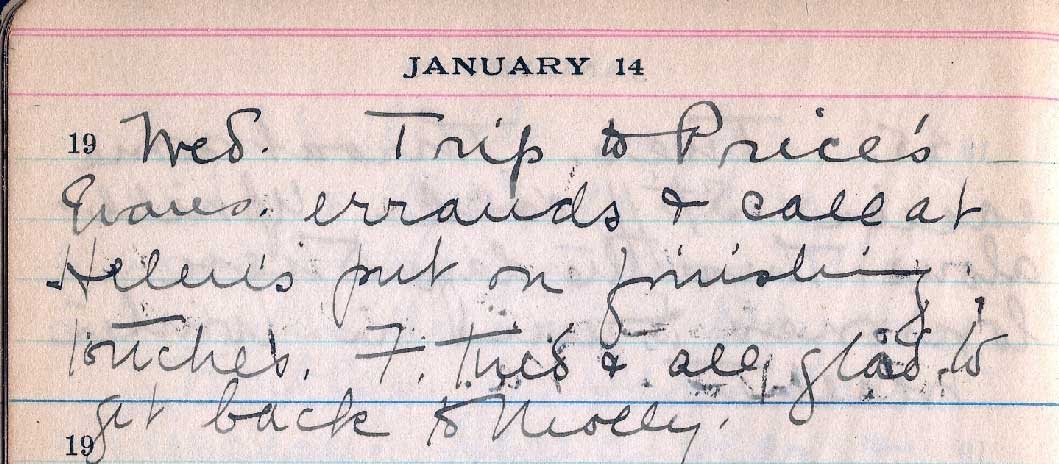 JANUARY 14
19 Wed. Trip to Price's -
Evans. errands & call at
Helen's put on finishing
touches. F. tired & all glad to
get back to Molly.
19